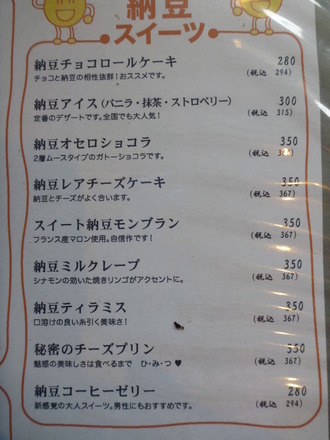 納豆
スイーツ
納豆チョコロールケーキ 280
チョコと納豆の相性抜群！おススメです。 (税込 294)
納豆アイス（バニラ・抹茶・ストロベリー） 300
定番のデザートです。全国でも大人気！ (税込 315)
納豆オセロショコラ 350
2層ムースタイプのガトーショコラです。 (税込
納豆レアチーズケーキ 350
納豆とチーズがよく合います。 (税込 367)
スイート納豆モンブラン 350
フランス産マロン使用。自信作です！ (税込 367)
納豆ミルクレープ 350
シナモンの効いた焼きリンゴがアクセントに。 (税込 367)
納豆ティラミス 350
口溶けの良い糸引く美味さ！ (税込 367)
秘密のチーズプリン 350
魅惑の美味しさは食べるまで ひ・み・つ♥ (税込 367)
納豆コーヒーゼリー 280
新感覚の大人スイーツ。男性にもおすすめです。 (税込 294)